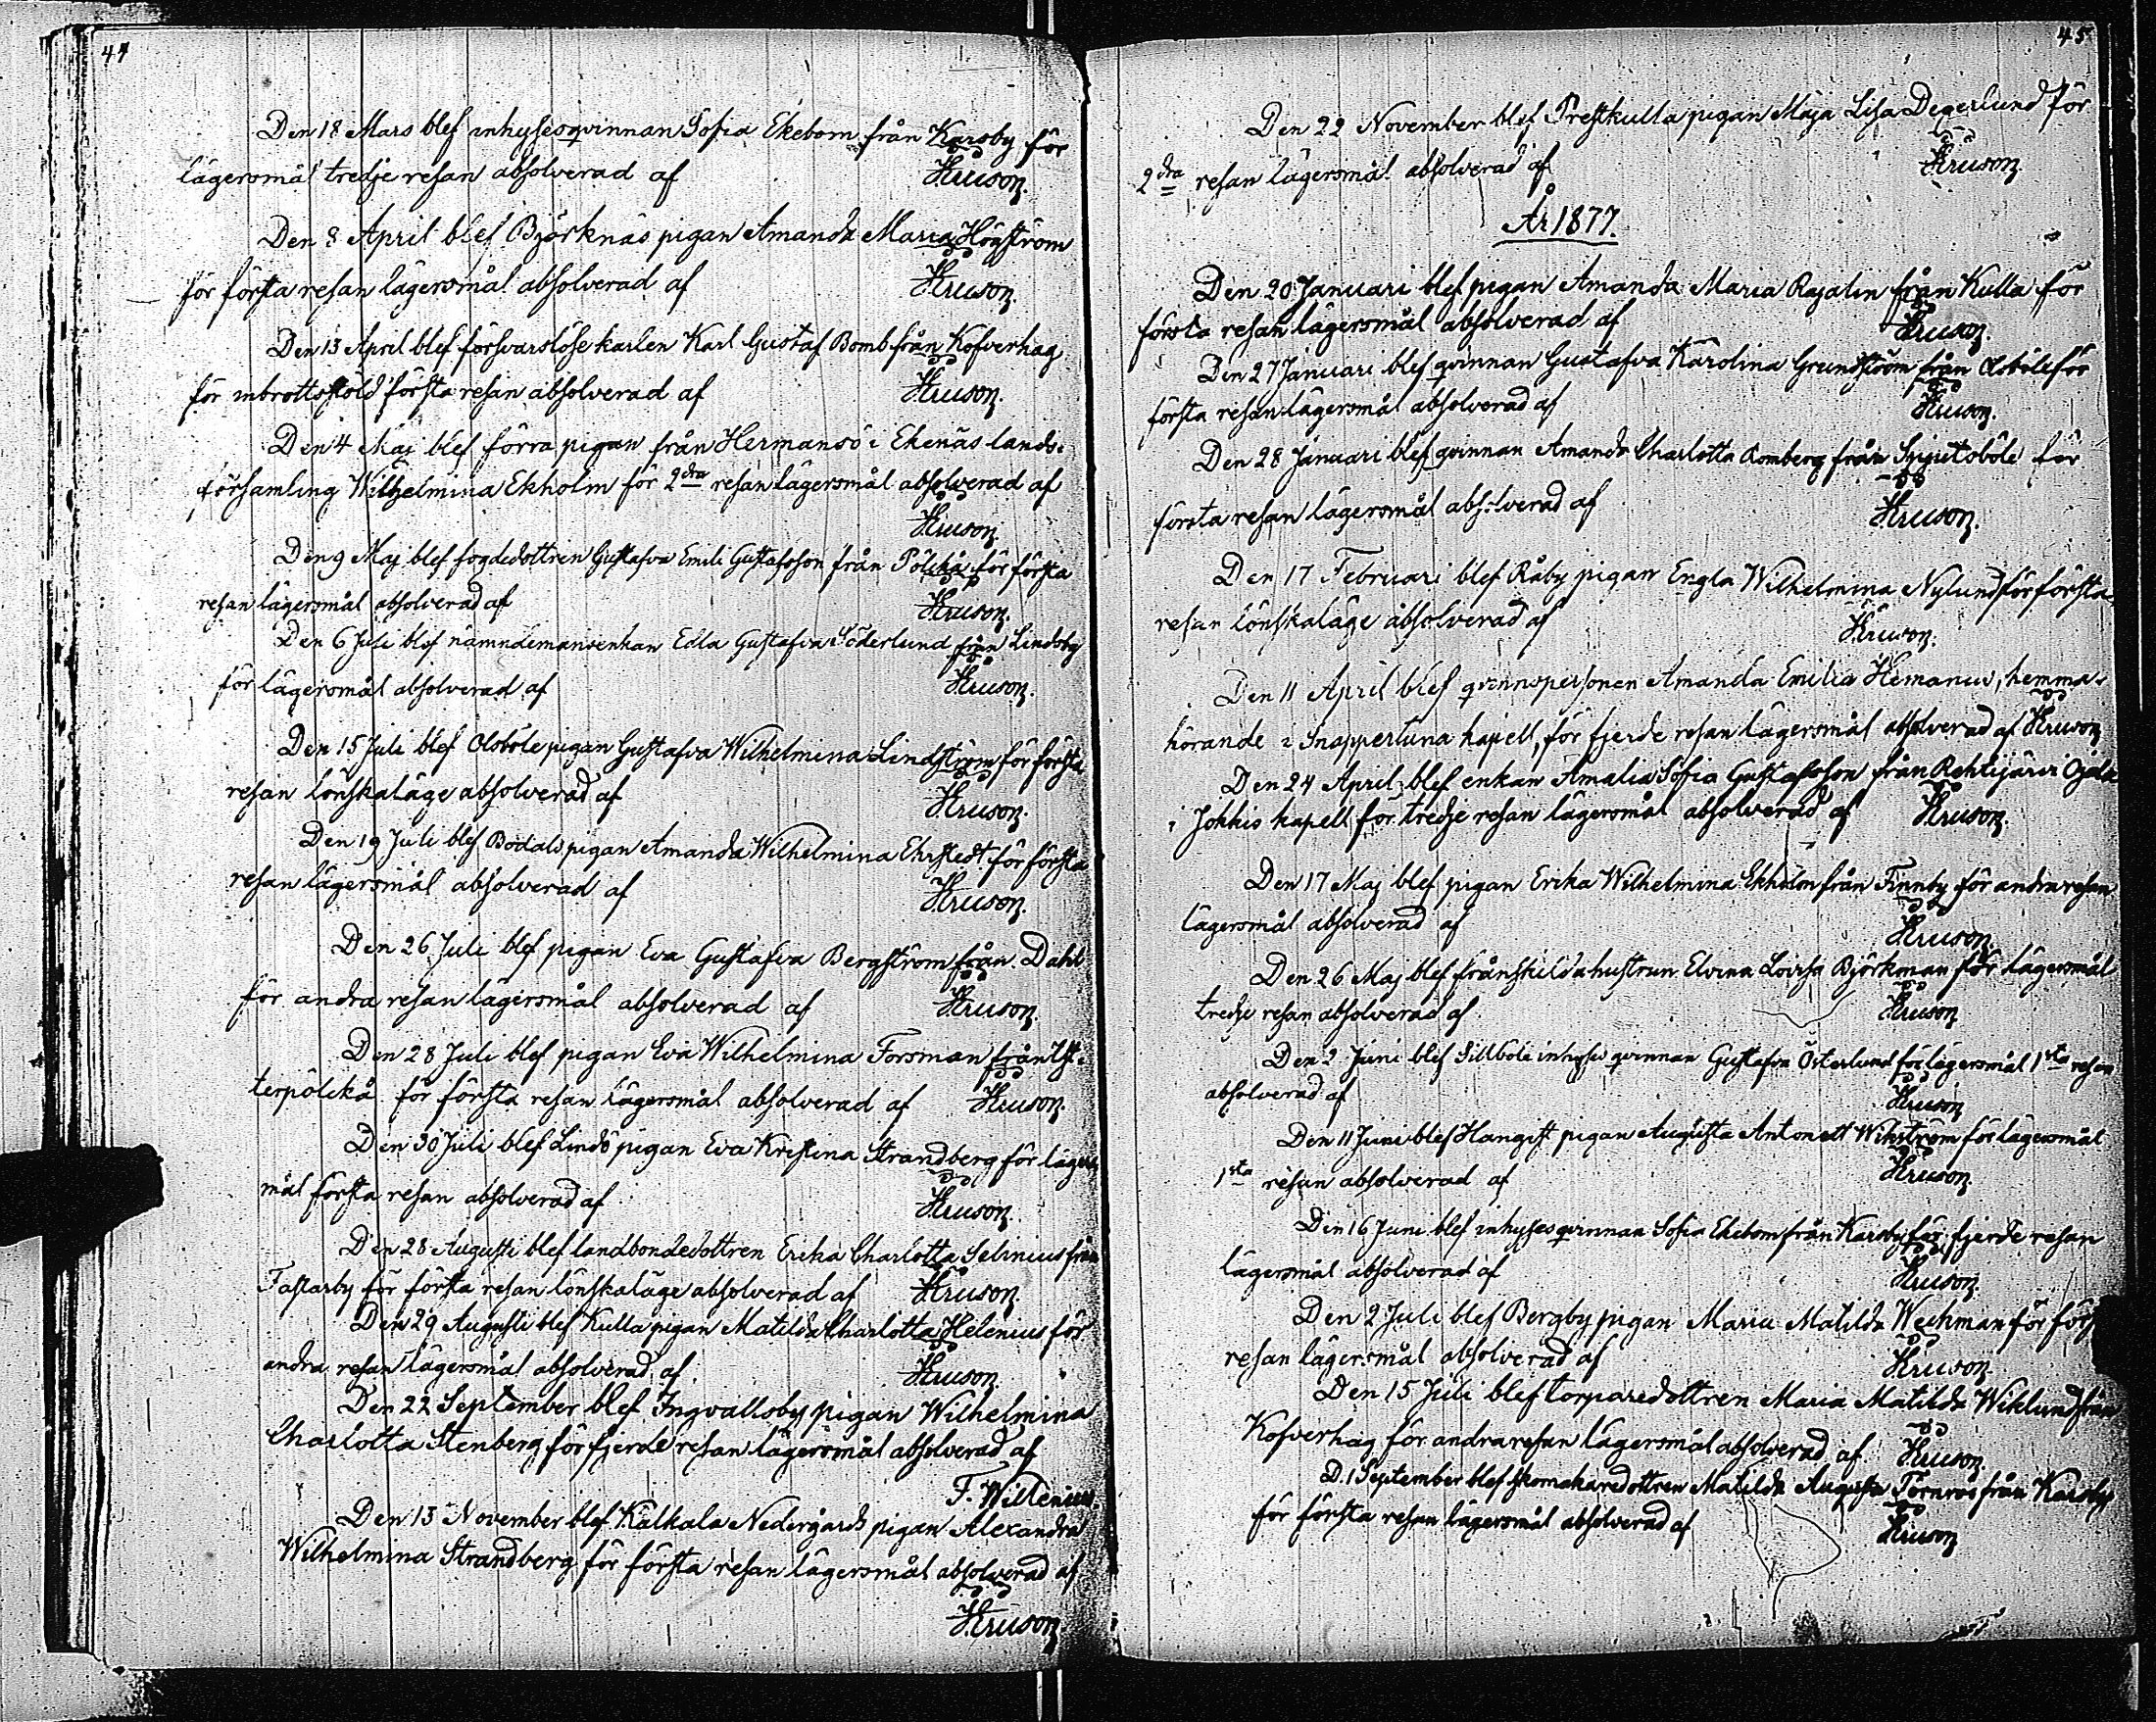 44
Den 18 Mars blef inhysesqvinnan Sofia Ekebom från Karsby för
lägersmål tredje resan absolverad af Kruson.
Den 8 April blef Björknäs pigan Amanda Maria Högström
för första resan lägersmål absolverad af Kruson.
Den 13 April blef försvarslöse karlen Karl Gustaf Bomb från Kofverhag
för inbrottsstöld första resan absolverad af Kruson.
Den 4 Maj blef förra pigan från Hermansö i Ekenäs lands-
församling Wilhelmina Ekholm för 2dra resan lägersmål absolverad af
Kruson.
Den 9 Maj blef fogdedottren Gustafva Emili Gustafsson från Pölckå för första
resan lägersmål absolverad af Kruson.
Den 6 Juli blef nämndemansenkan Edla Gustafva Söderlund från Lindsby
för lägersmål absolverad af Kruson.
Den 15 Juli blef Olsböle pigan Gustafva Wilhelmina Lindström för första
resan lönskaläge absolverad af Kruson.
Den 19 Juli blef Bodals pigan Amanda Wilhelmina Ehrstedt för första
resan lägersmål absolverad af Kruson.
Den 26 Juli blef pigan Eva Gustafva Bergström från Dahl
för andra resan lägersmål absolverad af Kruson.
Den 28 Juli blef pigan Eva Wilhelmina Forsman från
terpölckå för första resan lägersmål absolverad af Kruson.
Den 30 Juli blef Lindö pigan Eva Kristina Strandberg för lägers
mål första resan absolverad af Kruson.
Den 28 Augusti blef landbondedottren Erika Charlotta Selinius från
Fastarby för första resan lönskaläge absolverad af Kruson.
Den 29 Augusti blef Kulla pigan Matilda Charlotta Helenius för
andra resan lägersmål absolverad af Kruson.
Den 22 September blef Ingvallsby pigan Wilhelmina
Charlotta Stenberg för fjerde resan lägersmål absolverad af
F. Willenius.
Den 13 November blef Kälkala Nedergårds pigan Alexandra
Wilhelmina Strandberg för första resan lägersmål absolverad af
Kruson.
45
Den 22 November blef Prestkulla pigan Maja Lisa Degerlund för
2dra resan lägersmål absolverad af Kruson.
År 1877.
Den 20 Januari blef pigan Amanda Maria Rajalin från Kulla för
första resan lägersmål absolverad af Kruson.
Den 27 Januari blef qvinnan Gustafva Karolina Grundström från Olsböle för
första resan lägersmål absolverad af Kruson.
Den 28 Januari blef qvinnan Amanda Charlotta Romberg från för
första resan lägersmål absolverad af Kruson.
Den 17 Februari blef Råby pigan Engla Wilhelmina Nylund för första
resan lönskaläge absolverad af Kruson.
Den 11 April blef qvinnspersonen Amanda Emilia Hemanus, hemma-
hörande i Snappertuna kapell, för fjerde resan lägersmål absolverad af Kruson
Den 24 April blef enkan Amalia Sofia Gustafsson från Rehtijärvi
i Jokkis kapell för tredje resan lägersmål absolverad af Kruson.
Den 17 Maj blef pigan Erika Wilhelmina Ekholm från Finnby för andra resan
lägersmål absolverad af Kruson.
Den 26 Maj blef frånskilda hustrun Elvina Lovisa Björkman för lägersmål
tredje resan absolverad af Kruson
Den 2 Juni blef Sillböle inhyses qvinnan Gustafva Österlund för lägersmål 1sta resan
absolverad af Kruson
Den 11 Juni blef Hangist pigan Augusta Antonett Wikström för lägersmål
1sta resan absolverad af Kruson.
Den 16 Juni blef inhysesqvinnan Sofia Ekebom från Karsby för fjerde resan
lägersmål absolverad af Kruson.
Den 2 Juli blef Bergby pigan Maria Matilda Weckman för först
resan lägersmål absolverad af Kruson.
Den 15 Juli blef torparedottren Maria Matilda Wiklund från
Kofverhag för andra resan lägersmål absolverad af Kruson.
D. 1 September blef skomakaredottren Matilda Augusta Törnroos från Karsby
för första resan lägersmål absolverad af Kruson